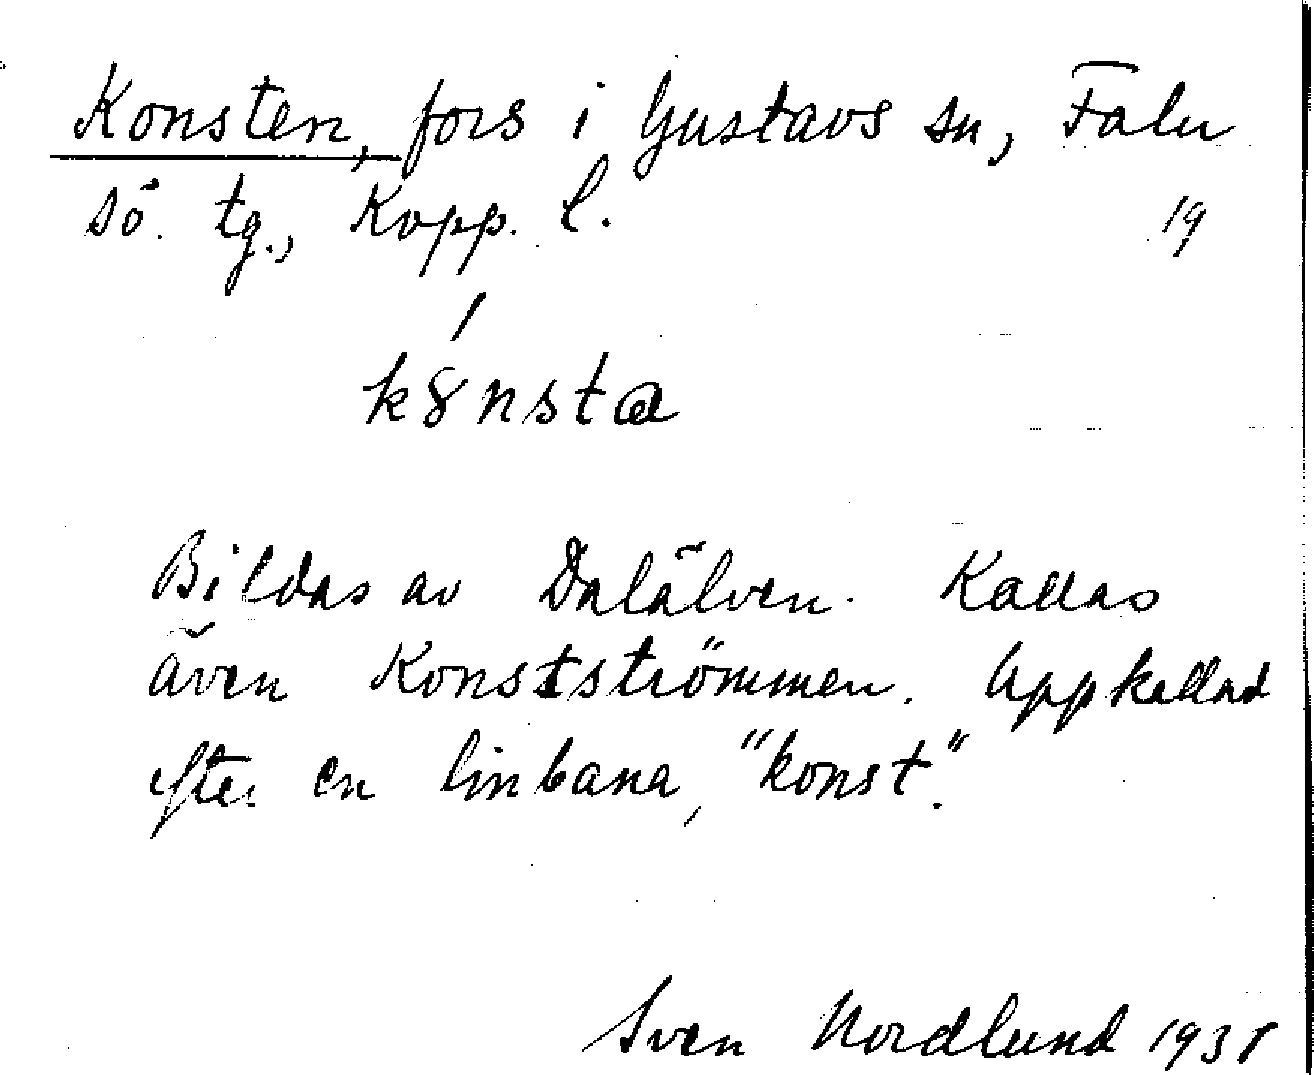 Konsten, fors i Gustavs sn, Falu
sö. tg., Kopp. l. 19
Bildas av Dalälven. Kallas
även Konstströmmen. Uppkallad
efter en linbana, "konst".
Sven Nordlund